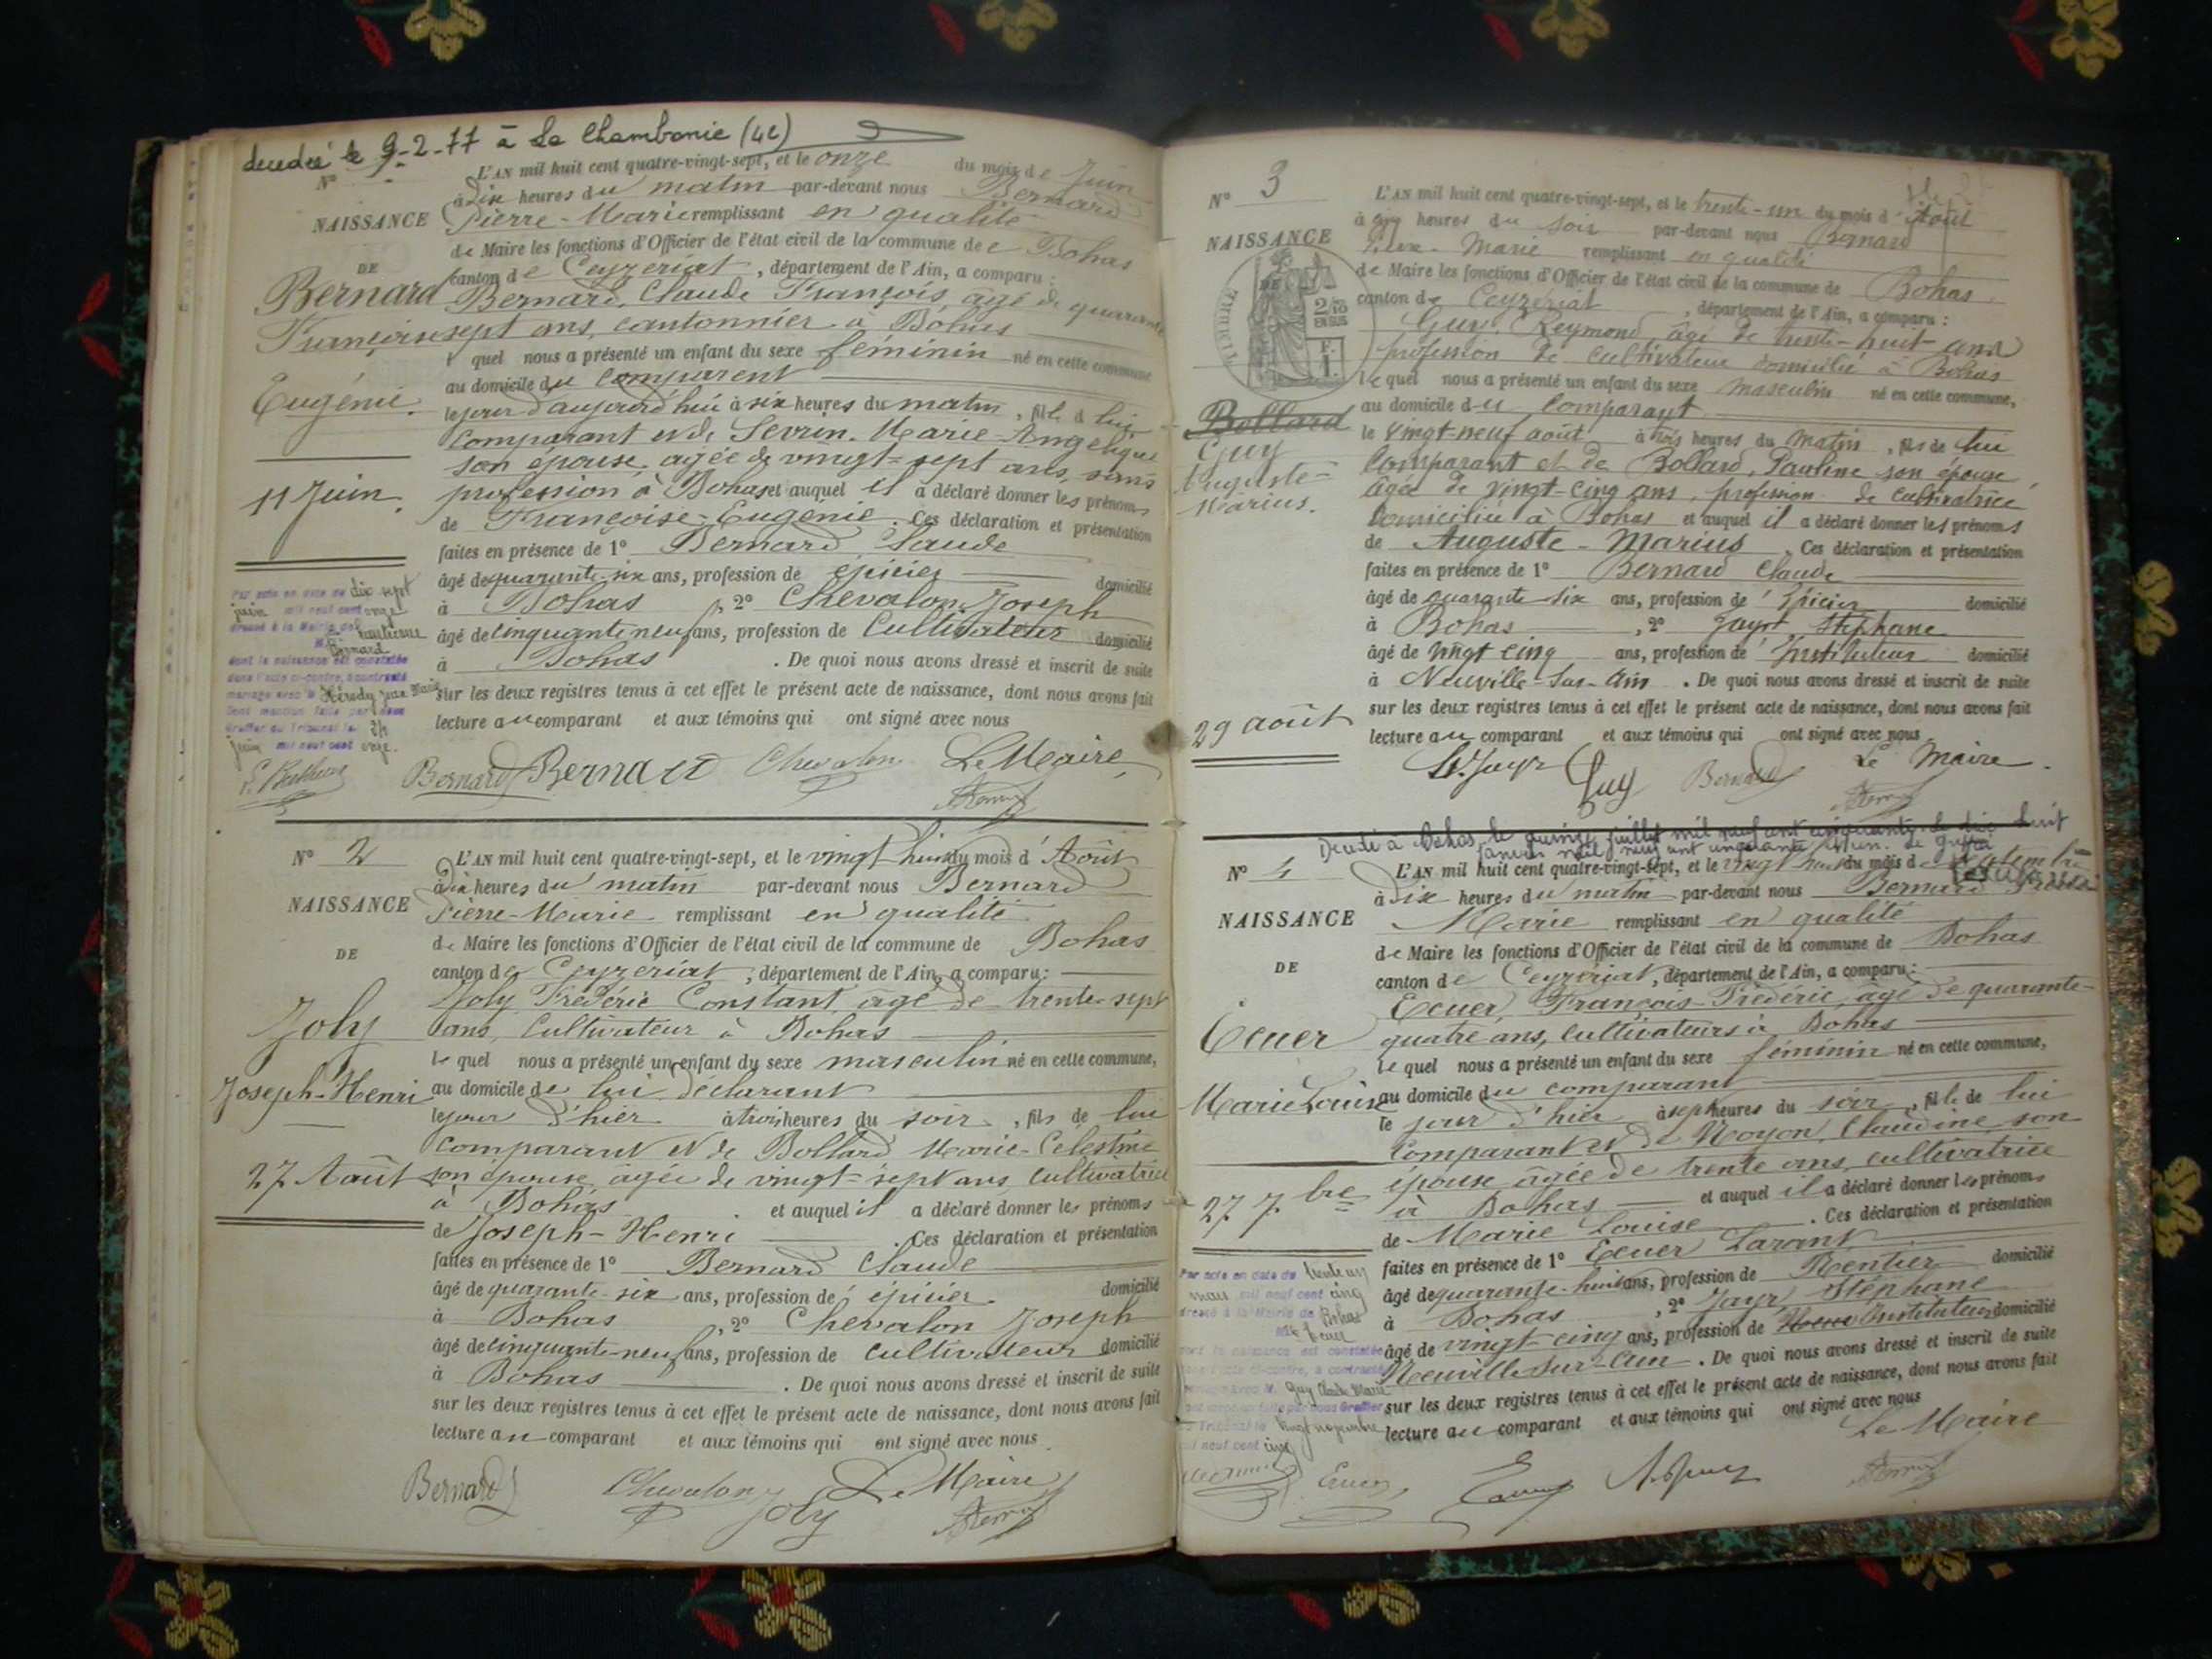 decedée le 9-2-77 à La Chambonie (42)
N°
L'AN mil huit cent quatre-vingt-sept, et le onze du mois de Juin
à dix heures du matin par-devant nous Bernard
NAISSANCE Pierre-Marie remplissant en qualité
de Maire les fonctions d'Officier de l'état civil de la commune de Bohas
DE canton de Ceyzeriat, département de l'Ain, a comparu :
Bernard Bernard, Claude François, âgé de quarante
Françoise sept ans, cantonnier à Bohas
quel nous a présenté un enfant du sexe féminin né en cette commune
au domicile du comparent
Eugénie. le jour d'aujourd'hui à six heures du matin, fille d lui
comparant et de Sevrin. Marie-Angelique
son épouse, agée de vingt-sept ans, sans
11 Juin. profession à Bohas et auquel il a déclaré donner les prénoms
de Françoise-Eugénie. Ces déclaration et présentation
faites en présence de 1° Bernard Claude
âgé de quarante-six ans, profession de épicier domicilié
à Bohas, 2° Chevalon Joseph
âgé de cinquante neuf ans, profession de Cultivateur domicilié
à Bohas. De quoi nous avons dressé et inscrit de suite
sur les deux registres tenus à cet effet le présent acte de naissance, dont nous avons fait
lecture au comparant et aux témoins qui ont signé avec nous
Par acte en date du dix sept
juin mil neuf cent onze
dressé à la Mairie de
Bernard
dont la naissance est constatée
dans l'acte ci-contre, a contracté
mariage avec le
juin mil neuf cent onze.
Bernard Bernard Chevalon Le Maire
N° 2
L'AN mil huit cent quatre-vingt-sept, et le vingt huit du mois d'Août
à dix heures du matin par-devant nous Bernard
NAISSANCE Pierre-Marie remplissant en qualité
de Maire les fonctions d'Officier de l'état civil de la commune de Bohas
DE canton de Ceyzeriat, département de l'Ain, a comparu :
Joly Frédéric Constant, âgé de trente-sept
Joly ans, Cultivateur à Bohas
le quel nous a présenté un enfant du sexe masculin né en cette commune,
Joseph-Henri au domicile de lui déclarant
le jour d'hier à trois heures du soir, fils de lui
comparant et de Bollard Marie-Celestine
27 Août son épouse agée de vingt-sept ans, cultivatrice
à Bohas et auquel il a déclaré donner les prénoms
de Joseph-Henri. Ces déclaration et présentation
faites en présence de 1° Bernard Claude
âgé de quarante-six ans, profession de épicier domicilié
à Bohas, 2° Chevalon Joseph
âgé de cinquante-neuf ans, profession de cultivateur domicilié
à Bohas. De quoi nous avons dressé et inscrit de suite
sur les deux registres tenus à cet effet le présent acte de naissance, dont nous avons fait
lecture au comparant et aux témoins qui ont signé avec nous
Bernard Chevalon Joly Le Maire
N° 3
L'AN mil huit cent quatre-vingt-sept, et le trente-un du mois d'Août
heures du soir par-devant nous Bernard
NAISSANCE Pierre-Marie remplissant en qualité
de Maire les fonctions d'Officier de l'état civil de la commune de Bohas
DE canton de Ceyzeriat, département de l'Ain, a comparu :
TIMBRE
2/10
EN SUS
F.
1.
Guy, Reymond âgé de trente-huit ans
profession de cultivateur domicilié à Bohas
le quel nous a présenté un enfant du sexe masculin né en cette commune,
Bollard au domicile du comparant
Guy le vingt-neuf août à trois heures du matin, fils de lui
Auguste- comparant et de Bollard, Pauline son épouse
Marius. âgée de vingt-cinq ans, profession de cultivatrice
domiciliée à Bohas et auquel il a déclaré donner les prénoms
de Auguste-Marius. Ces déclaration et présentation
faites en présence de 1° Bernard Claude
âgé de quarante six ans, profession d'épicier domicilié
à Bohas, 2° Jayr Stéphane
âgé de vingt cinq ans, profession d'Instituteur domicilié
à Neuville-sur-Ain. De quoi nous avons dressé et inscrit de suite
sur les deux registres tenus à cet effet le présent acte de naissance, dont nous avons fait
29 août lecture au comparant et aux témoins qui ont signé avec nous
St. Jayr Guy Bernard Le Maire.
Décédé à Bohas le quinze juillet mil neuf cent cinquante
N° 4
L'AN mil huit cent quatre-vingt-sept, et le vingt huit du mois de septembre
à dix heures du matin par-devant nous Bernard Pierre
NAISSANCE Marie remplissant en qualité
de Maire les fonctions d'Officier de l'état civil de la commune de Bohas
DE canton de Ceyzeriat, département de l'Ain, a comparu :
Ecuer, François-Frédéric, âgé de quarante-
Ecuer quatre ans, cultivateur à Bohas
le quel nous a présenté un enfant du sexe féminin né en cette commune,
Marie Louise au domicile du comparant
le jour d'hier à sept heures du soir, fille de lui
comparant et de Noyon, Claudine, son
épouse âgée de trente ans, cultivatrice
27 7bre à Bohas et auquel il a déclaré donner les prénoms
de Marie Louise. Ces déclaration et présentation
faites en présence de 1° Ecuer Larant
âgé de quarante-huit ans, profession de Rentier domicilié
à Bohas, 2° Jayr Stéphane
âgé de vingt-cinq ans, profession de Instituteur domicilié
Neuville-sur-Ain. De quoi nous avons dressé et inscrit de suite
sur les deux registres tenus à cet effet le présent acte de naissance, dont nous avons fait
lecture au comparant et aux témoins qui ont signé avec nous
Par acte en date du trente un
mars mil neuf cent cinq
dressé à la Mairie de Bohas
Ecuer
dont la naissance est constatée
Guy Claude Marie
vingt novembre
mil neuf cent cinq
Ecuer Le Maire